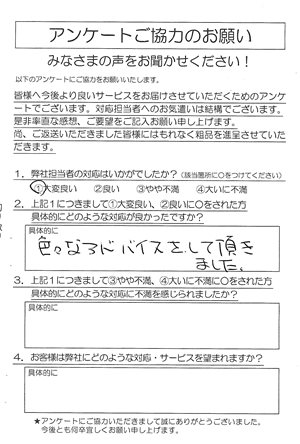 アンケートご協力のお願い
みなさまの声をお聞かせください！
以下のアンケートにご協力をお願いいたします。
皆様へ今後より良いサービスをお届けさせていただくためのアンケ
ートでございます。対応担当者へのお気遣いは結構でございます。
是非率直な感想、ご要望をご記入お願い申し上げます。
尚、ご返送いただきました皆様にはもれなく粗品を進呈させていた
だきます。
1．弊社担当者の対応はいかがでしたか？（該当箇所に○をつけてください）
①大変良い　②良い　③やや不満　④大いに不満
2．上記１につきまして①大変良い、②良いに○をされた方
具体的にどのような対応が良かったですか？
具体的に
色々なアドバイスをして頂き
ました。
3．上記１につきまして③やや不満、④大いに不満に○をされた方
具体的にどのような対応に不満を感じられましたか？
具体的に
4．お客様は弊社にどのような対応・サービスを望まれますか？
具体的に
★アンケートにご協力いただきまして誠にありがとうございました。
今後とも何卒宜しくお願い申し上げます。